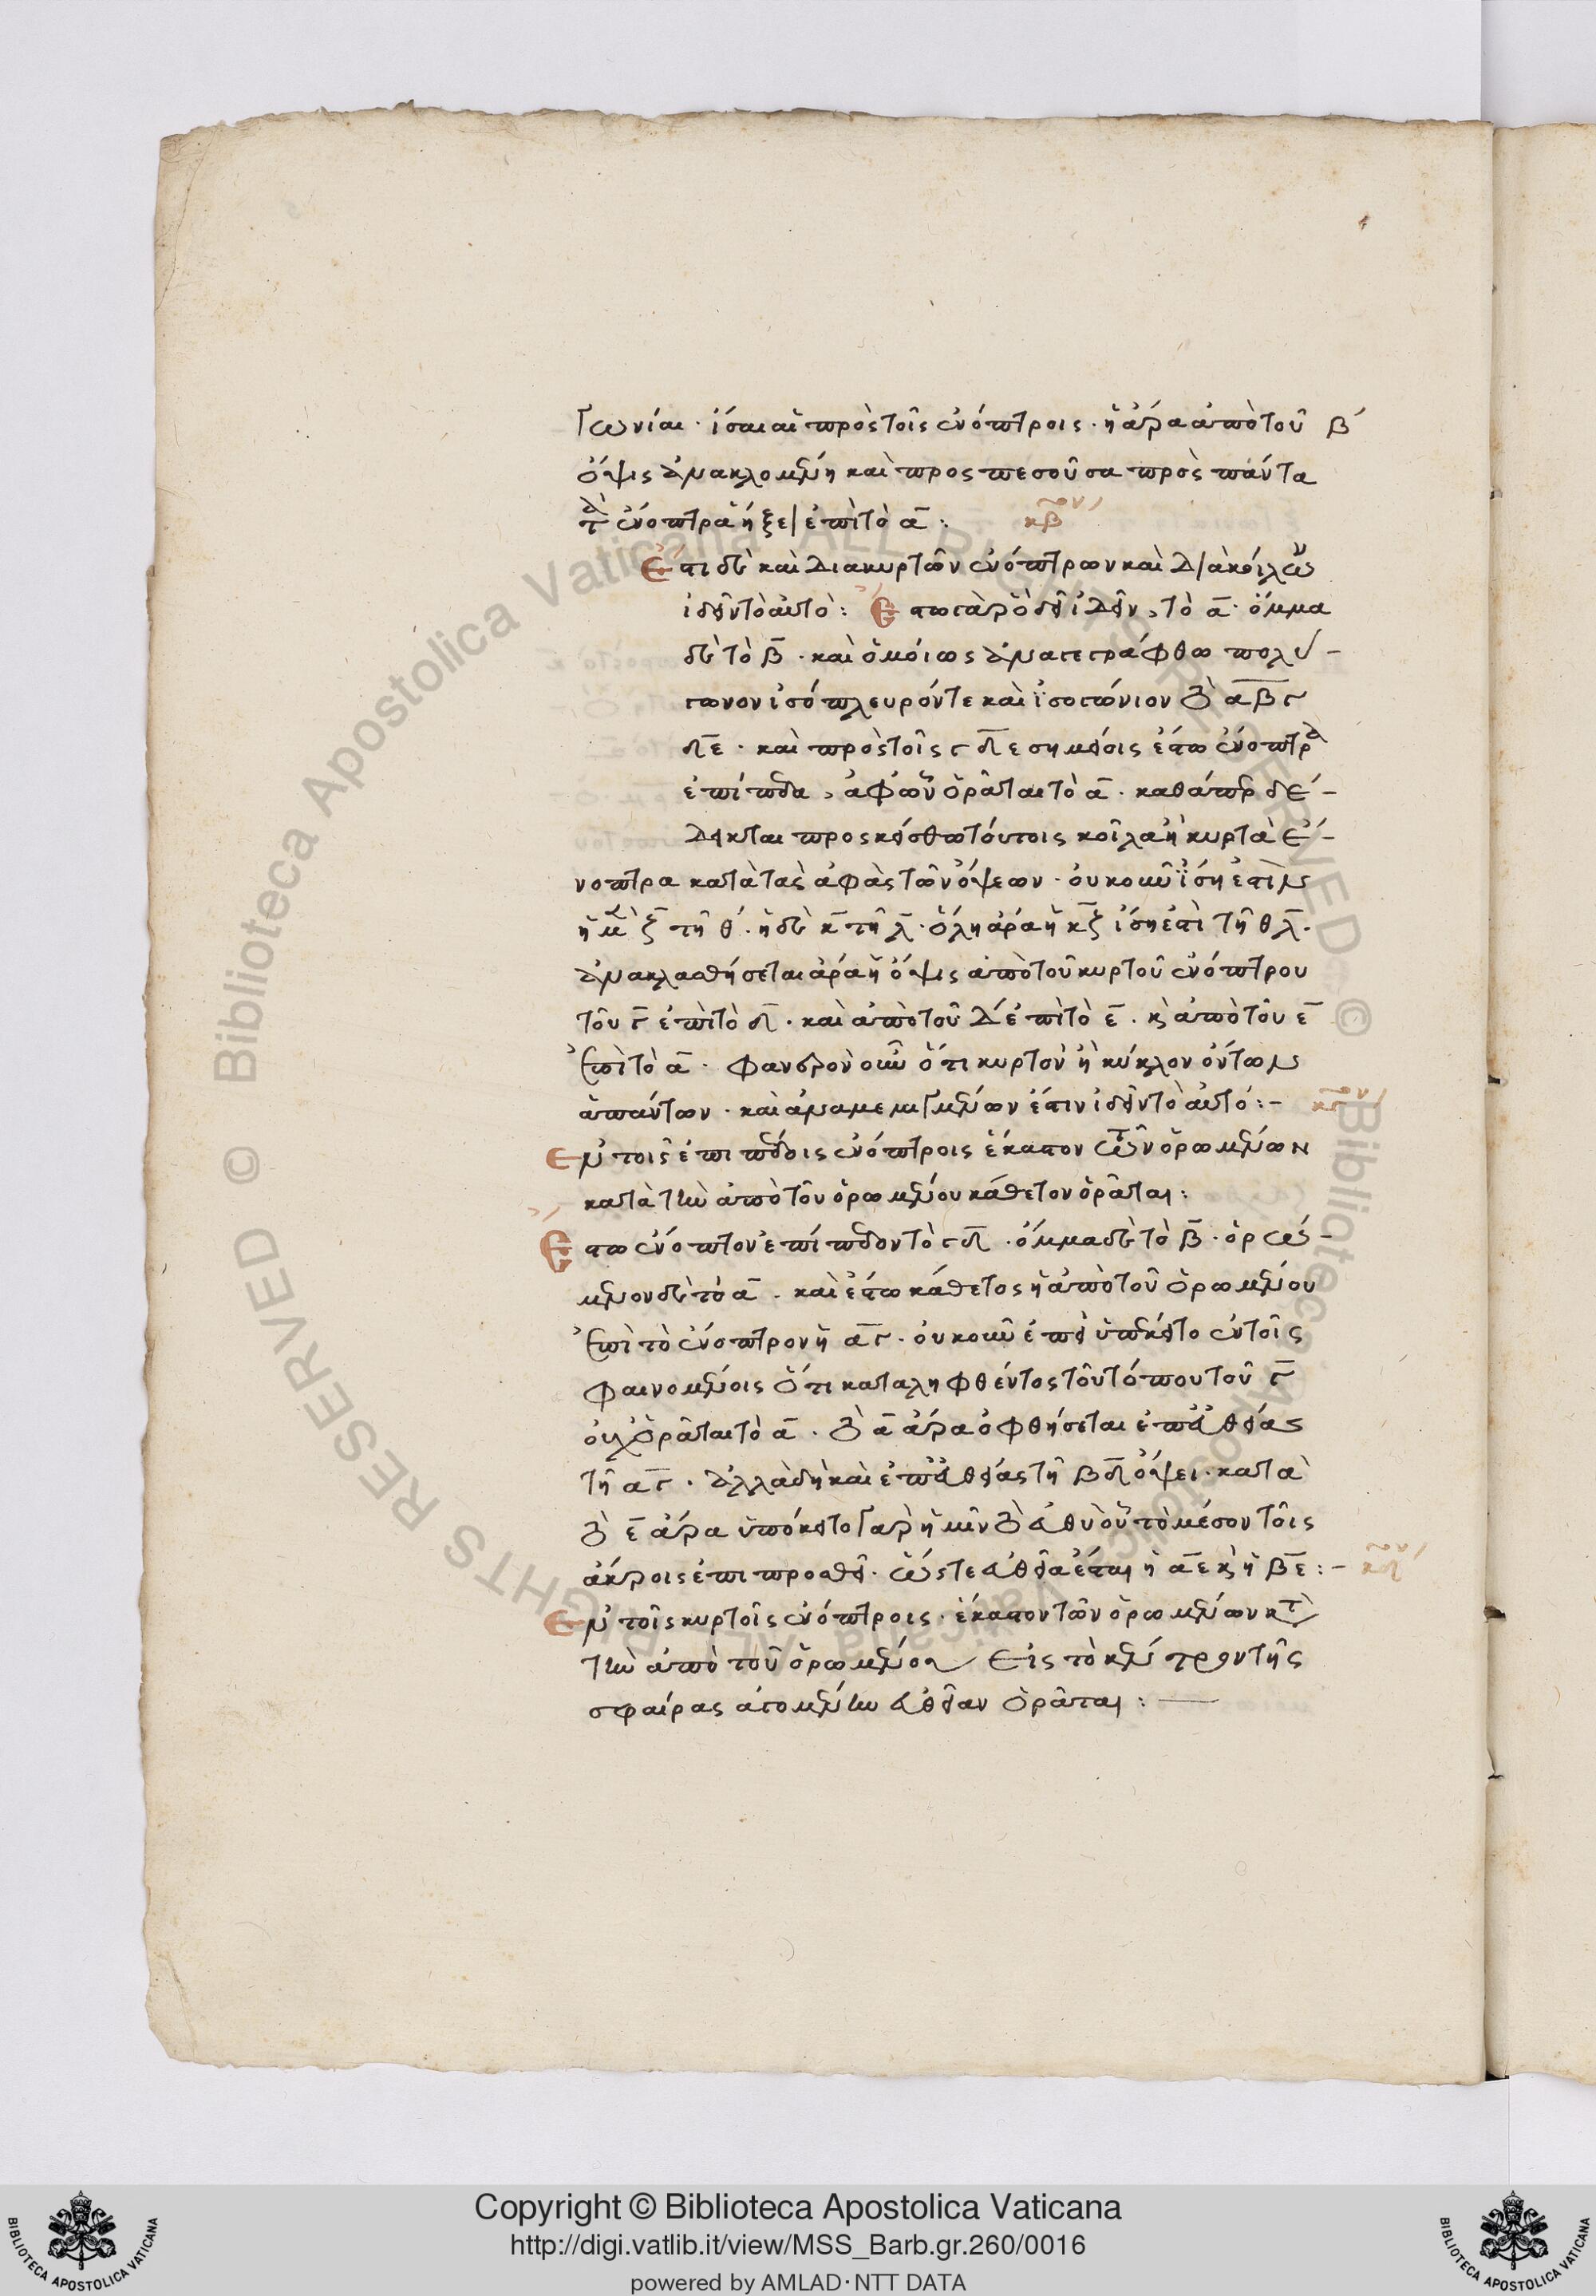 γωνίαι · ἴσαι αἱ πρὸς τοῖς ἐνόπτροις · ἡ ἄρα ἀπὸ τοῦ β
ὄψις ἀνακλομένη καὶ προς πεσοῦσα πρὸς πάντα
τὰ ἔνοπτρα ἥξει ἐπὶ τὸ α :
κβον
Ἔστι δὲ καὶ διακυρτῶν ἐνόπτρων καὶ διὰ κοίλων
ἰδεῖν τὸ αὐτὸ : Ἔστω γὰρ ὃ δεῖ ἰδεῖν, τὸ α · ὄμμα
δὲ τὸ β · καὶ ὁμοίως ἀναγεγράφθω πολύ-
γωνον ἰσόπλευρόν τε καὶ ἰσογώνιον τὸ αβγ
δε · καὶ πρὸς τοῖς γ δ ε σημείοις ἔστω ἔνοπτρα
ἐπίπεδα, ἀφ ὧν ὁρᾶται τὸ α · καθάπερ δέ-
δεικται προς κείσθω τούτοις κοῖλα ἢ κυρτὰ ἔ-
νοπτρα κατὰ τὰς ἁφὰς τῶν ὄψεων · οὐκοῦν ἴση ἐστὶν
ἡ μὲν ζ τῆ θ · ἡ δὲ κ τῆ λ · ὅλη ἄρα ἡ κζ ἴση ἐστὶ τῆ θλ ·
ἀνακλασθήσεται ἄρα ἡ ὄψις ἀπὸ τοῦ κυρτοῦ ἐνόπτρου
τοῦ γ ἐπὶ τὸ δ · καὶ ἀπὸ τοῦ δ ἐπὶ τὸ ε · κὶ ἀπὸ τοῦ ε
ἐπὶ τὸ α · φανερὸν οὖν ὅτι κυρτὸν ἢ κύκλον ὄντων
ἁπάντων · καὶ ἀναμεμιγμένων ἔστιν ἰδεῖν τὸ αὐτό :-
κγον
Ἐν τοῖς ἐπιπέδοις ἐνόπτροις ἕκαστον τῶν ὁρωμένων
κατὰ τὴν ἀπὸ τοῦ ὁρωμένου κάθετον ὁρᾶται :
Ἔστω ἔνοπτον ἐπίπεδον τὸ γδ · ὄμμα δὲ τὸ β · ὁρώ-
μενον δὲ τὸ α · καὶ ἔστω κάθετος ἡ ἀπὸ τοῦ ὁρωμένου
ἐπὶ τὸ ἔνοπτρον ἡ αγ · οὐκοῦν ἐπεὶ ὑπέκειτο ἐν τοῖς
φαινομένοις ὅτι καταληφθέντος τοῦ τόπου τοῦ γ
οὐχ ὁρᾶται τὸ α · τὸ α ἄρα ὀφθήσεται ἐπ εὐθείας
τῆ αγ · ἀλλὰ δὴ καὶ ἐπ εὐθείας τῆ βδ ὄψει · κατὰ
τὸ ε ἄρα ὑπόκειτο γὰρ ἡμῖν τὸ εὐθὺ οὗ τὸ μέσον τοῖς
ἄκροις ἐπιπροσθεῖ · ὥστε εὐθεῖα ἔσται ἡ αε κὶ ἡ βε :-
κδον
Ἐν τοῖς κυρτοῖς ἐνόπτροις · ἕκαστον τῶν ὁρωμένων κτ
τὴν ἀπὸ τοῦ ὁρωμένου εἰς τὸ κέντρον τῆς
σφαίρας ἀγομένην εὐθεῖαν ὁρᾶται :
Copyright © Biblioteca Apostolica Vaticana
http://digi.vatlib.it/view/MSS_Barb.gr.260/0016
powered by AMLAD·NTT DATA
BIBLIOTECA APOSTOLICA VATICANA
BIBLIOTECA APOSTOLICA VATICANA
© Biblioteca Apostolica Vaticana ALL RIGHTS RESERVED
© Biblioteca Apostolica Vaticana ALL RIGHTS RESERVED